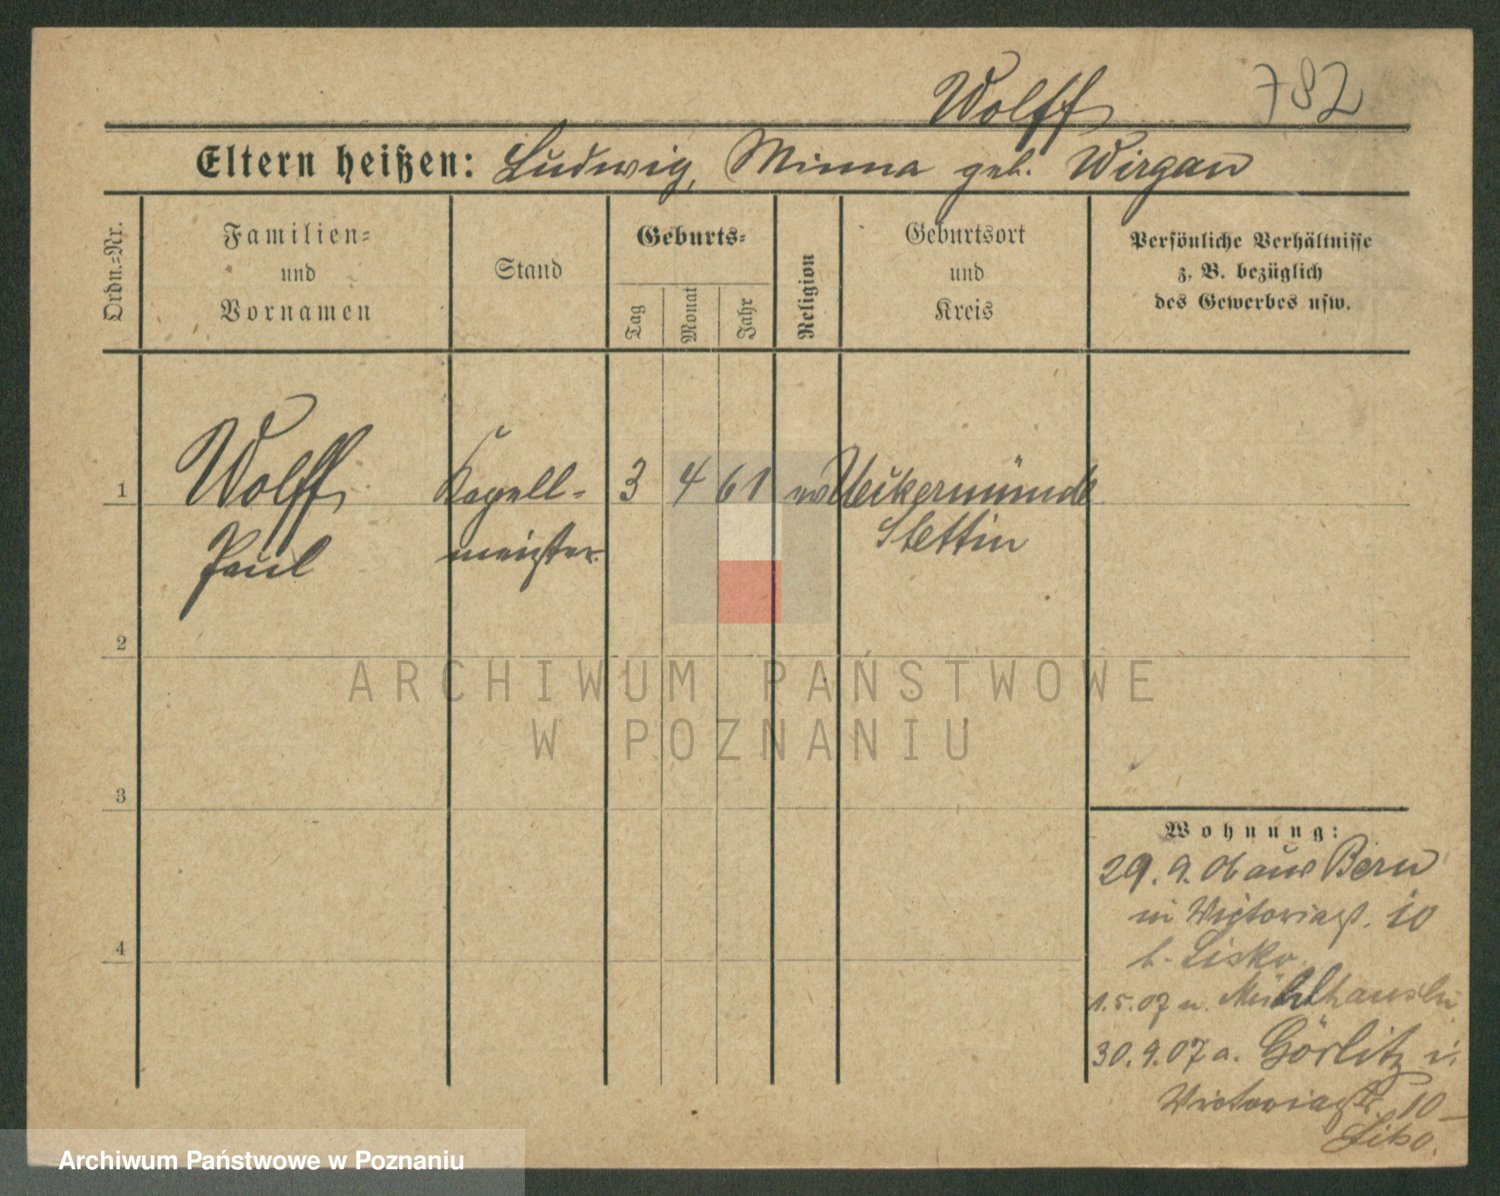 Wolff 782
Eltern heißen: Ludwig, Minna geb. Wirgau
Ordn.-Nr.
Familien-
und
Vornamen
Stand
Geburts-
Tag
Monat
Jahr
Religion
Geburtsort
und
Kreis
Persönliche Verhältnisse
z. B. bezüglich
des Gewerbes usw.
1 Wolff Kapell- 3 4 61 ev Ueckermünde
Paul meister Stettin
2
ARCHIWUM PAŃSTWOWE
W POZNANIU
3
Wohnung:
29.9.06 aus Bern
in Victoriast. 10
b. Lisko
4
1.5.07 n. Mühlhausen
30.9.07 a. Görlitz i.
Victoriastr. 10
Archiwum Państwowe w Poznaniu